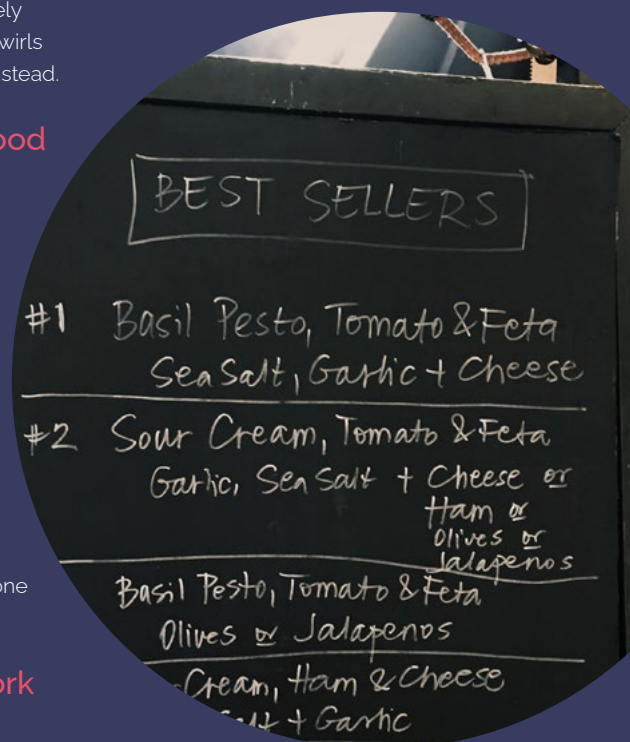 stead.
BEST SELLERS
#1 Basil Pesto, Tomato & Feta
Sea Salt, Garlic + Cheese
#2 Sour Cream, Tomato & Feta
Garlic, Sea Salt + Cheese or
Ham or
Olives or
Jalapenos
Basil Pesto, Tomato & Feta
one
Olives or Jalapenos
Cream, Ham & Cheese
+ Garlic